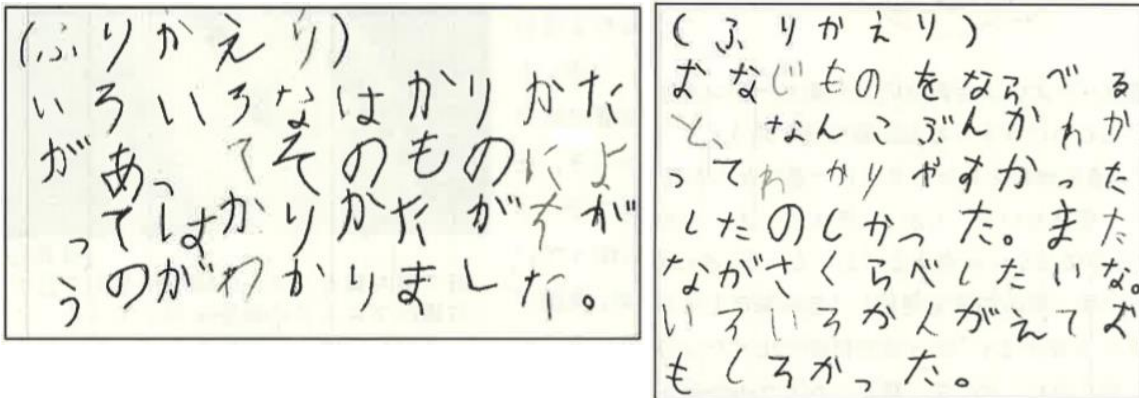 (ふりかえり)
いろいろなはかりかた
があってそのものによ
ってはかりかたがちが
うのがわかりました。
(ふりかえり)
おなじものをならべる
と、なんこぶんかわか
ってわかりやすかった
したのしかった。また
ながさくらべしたいな。
いろいろかんがえてお
もしろかった。